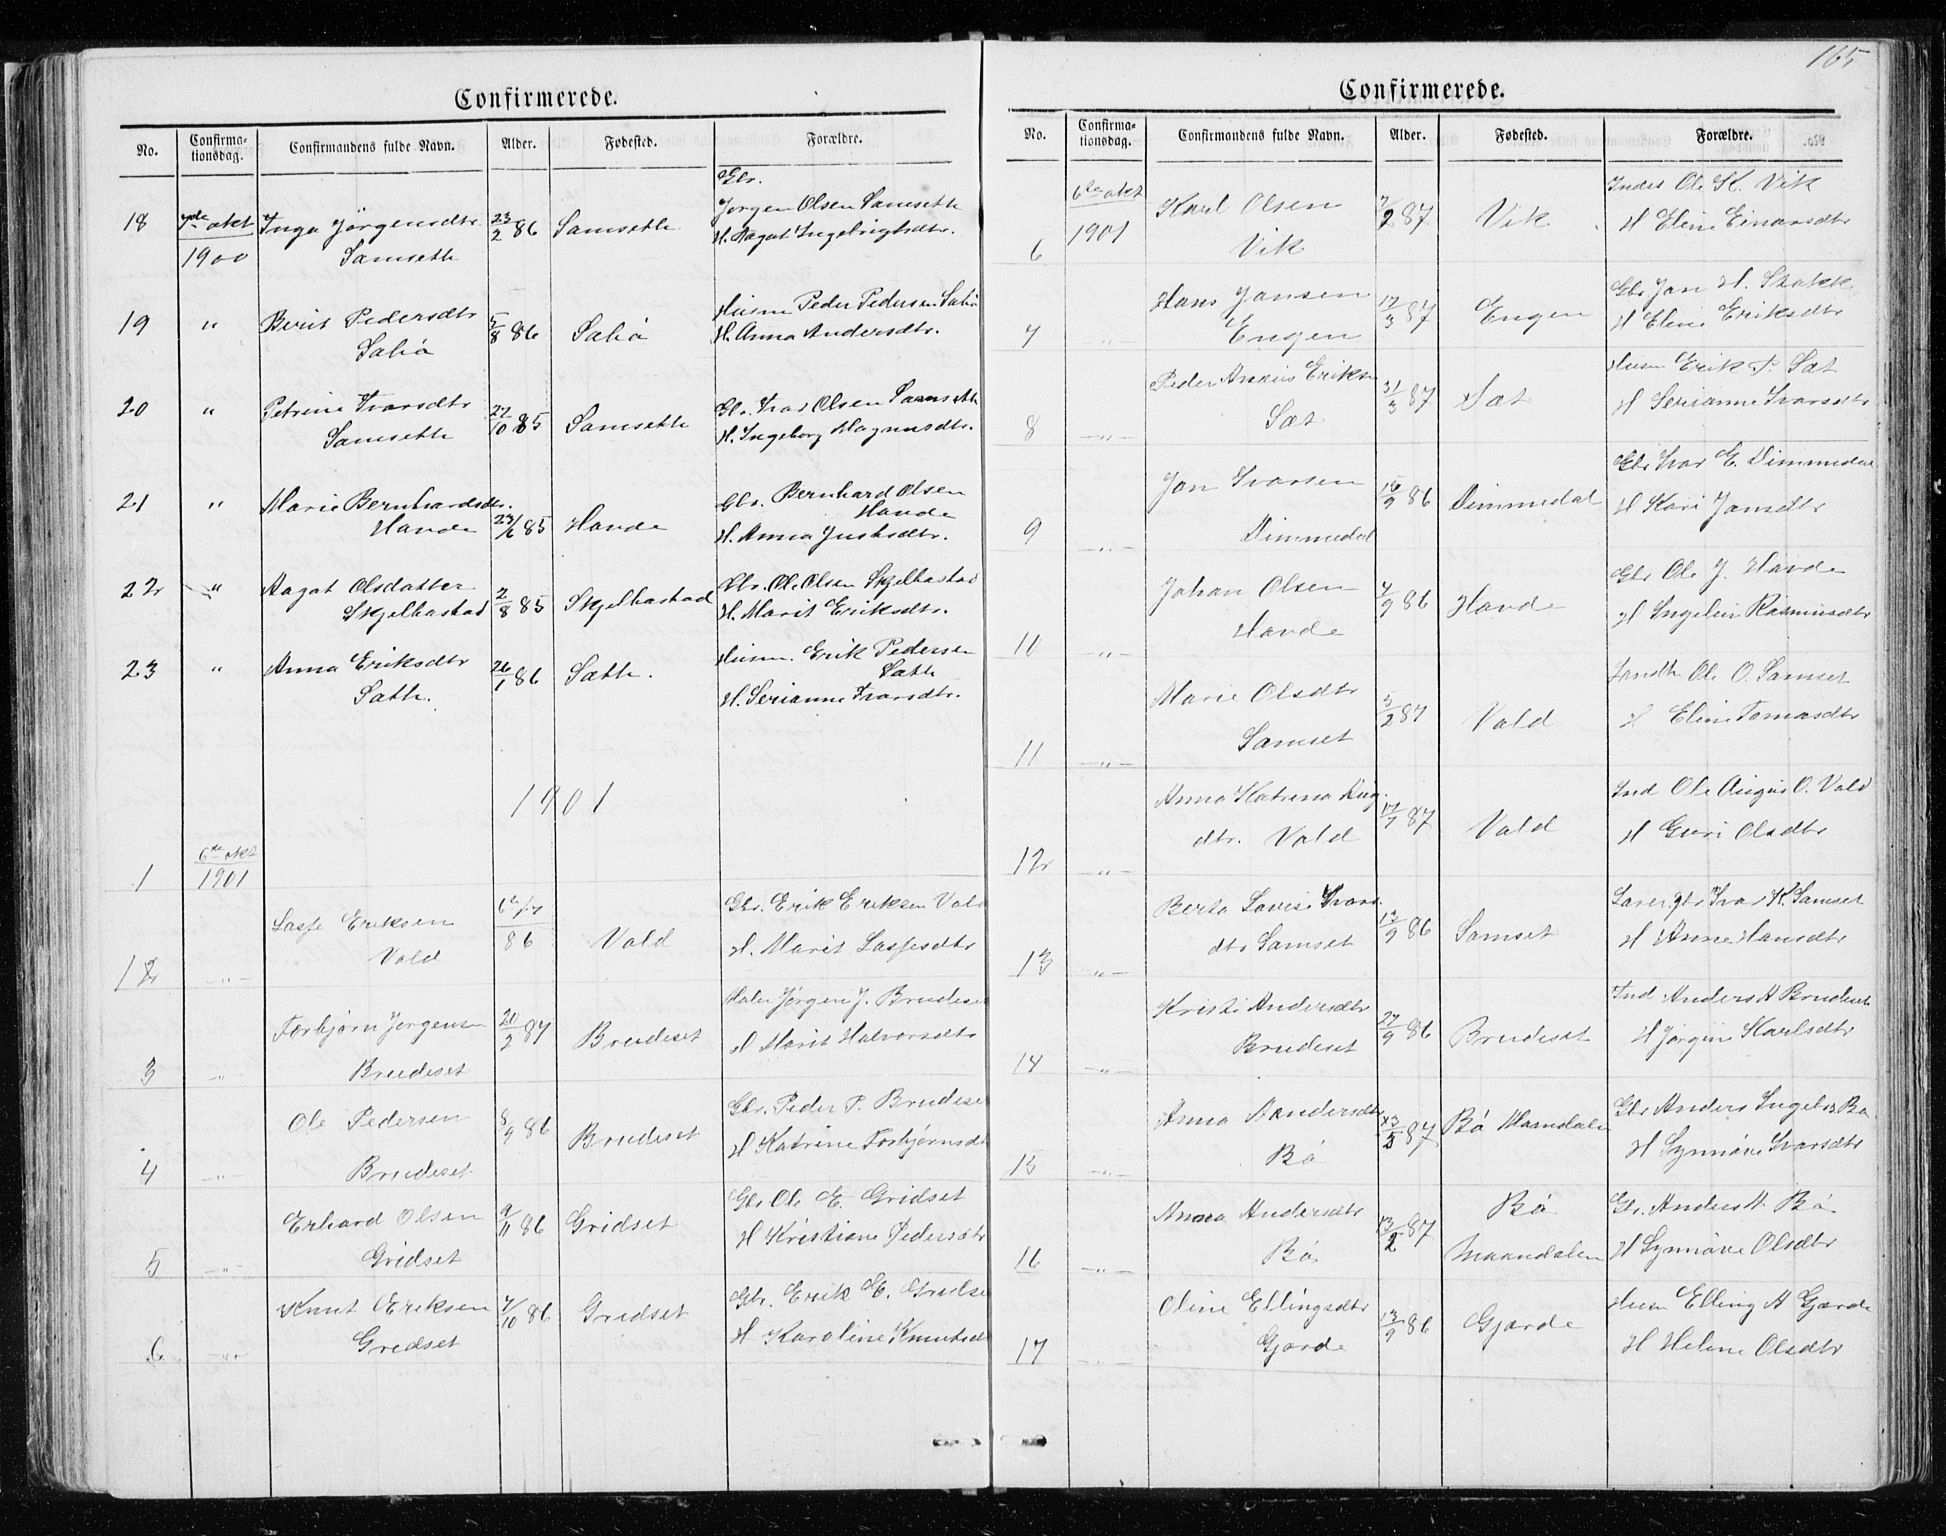 Confirmerede.
No. Confirmationsdag. Confirmandens fulde Navn. Alder. Fødested. Forældre.
18 7de okt 1900 Inga Jørgensdtr. Samsette 23/2 86 Samsette Gbr. Jørgen Olsen Samsette
H. Aagot Ingebrigtsdtr.
19 " Berit Pedersdtr Salsø 5/8 86 Husm Peder Pedersen
H. Anna Andersdtr.
20 " Petrine Ivarsdtr Samsette 27/10 85 Samsette Gbr. Ivar Olsen Samsette
H. Ingeborg Magnusdtr.
21 " Marie Bernhardsdtr. Havde 23/6 85 Havde Gbr. Bernhard Olsen Havde
H. Anna Justsdtr.
22 " Aagot Olsdatter Skjelbostad 2/8 85 Skjelbostad Gbr. Ole Olsen Skjelbostad
H. Marit Eriksdtr.
23 " Anna Eriksdtr Sætte. 26/1 86 Sætte. Husm. Erik Pedersen Sætte
H. Serianne Ivarsdtr.
1901
1 6te okt 1901
Lasse Eriksen Vold 86 Vold Gbr. Erik Eriksen Vold
H. Marit Lassesdtr
2 -"-
Torbjørn Jørgensen Brudeset 20/2 87 Brudeset Jørgen J. Brudeset
H Marit Halvorsdtr
3 -"-
Ole Pedersen Brudeset 8/9 86 Brudeset Gbr. Peder P. Brudeset
H Katrine Torbjørnsdt
4 -"-
Erhard Olsen Gridset 9/11 86 Gridset Gbr Ole E. Gridset
H Kristiane Pedersdtr
5 -"-
Knut Eriksen Gridset 7/10 86 Gridset Gbr. Erik
H Karoline Knutsd
6 -"-
165
Confirmerede.
No. Confirmationsdag. Confirmandens fulde Navn. Alder. Fødested. Forældre.
6te okt 1901
6 Karl Olsen Vik 7/2 87 Vik Ole K. Vik
H Eline Einarsdtr
7 " Hans Jansen Engen 12/3 87 Engen Gbr Jan H.
H Eline Eriksdtr
8 -"- Peder Eriks Sæt 31/3 87 Sæt Husm Erik P. Sæt
H Serianne Ivarsdtr
9 -"- Jon Ivarsen Dimmedal 16/9 86 Dimmedal Gbr Ivar E. Dimmedal
H Kari Jonsdtr
10 -"- Johan Olsen Havde 4/9 86 Havde Gbr Ole J. Havde
H Rasmusdtr
11 -"- Marie Olsdtr Samset 5/2 87 Vold Ole O. Samset
H Eline Tomasdtr
12 -"- Anna Katrina dtr. Vold 17/7 87 Vold Ind Ole O. Vold
H Guri Olsdtr
13 -"- Berta Lovise Ivars dtr Samset 13/9 86 Samset Ivar K. Samset
H Anne Hansdtr
14 -"- Kristi Andersdtr Brudeset 27/9 86 Brudeset Ind Anders A Brudeset
H Jørgine Karlsdtr
15 -"- Anna Aandersdtr Bø 23/5 87 Bø Maandalen Gbr Anders Bø
H Synnøve Ivarsdtr
16 -"- Anna Andersdtr Bø 13/2 87 Bø Maandalen Gbr. Anders A. Bø
H Synnøve Olsdtr
17 -"- Oline Ellingsdtr Gjærde 13/9 86 Gjærde Husm Elling A Gjærde
H Helene Olsdtr